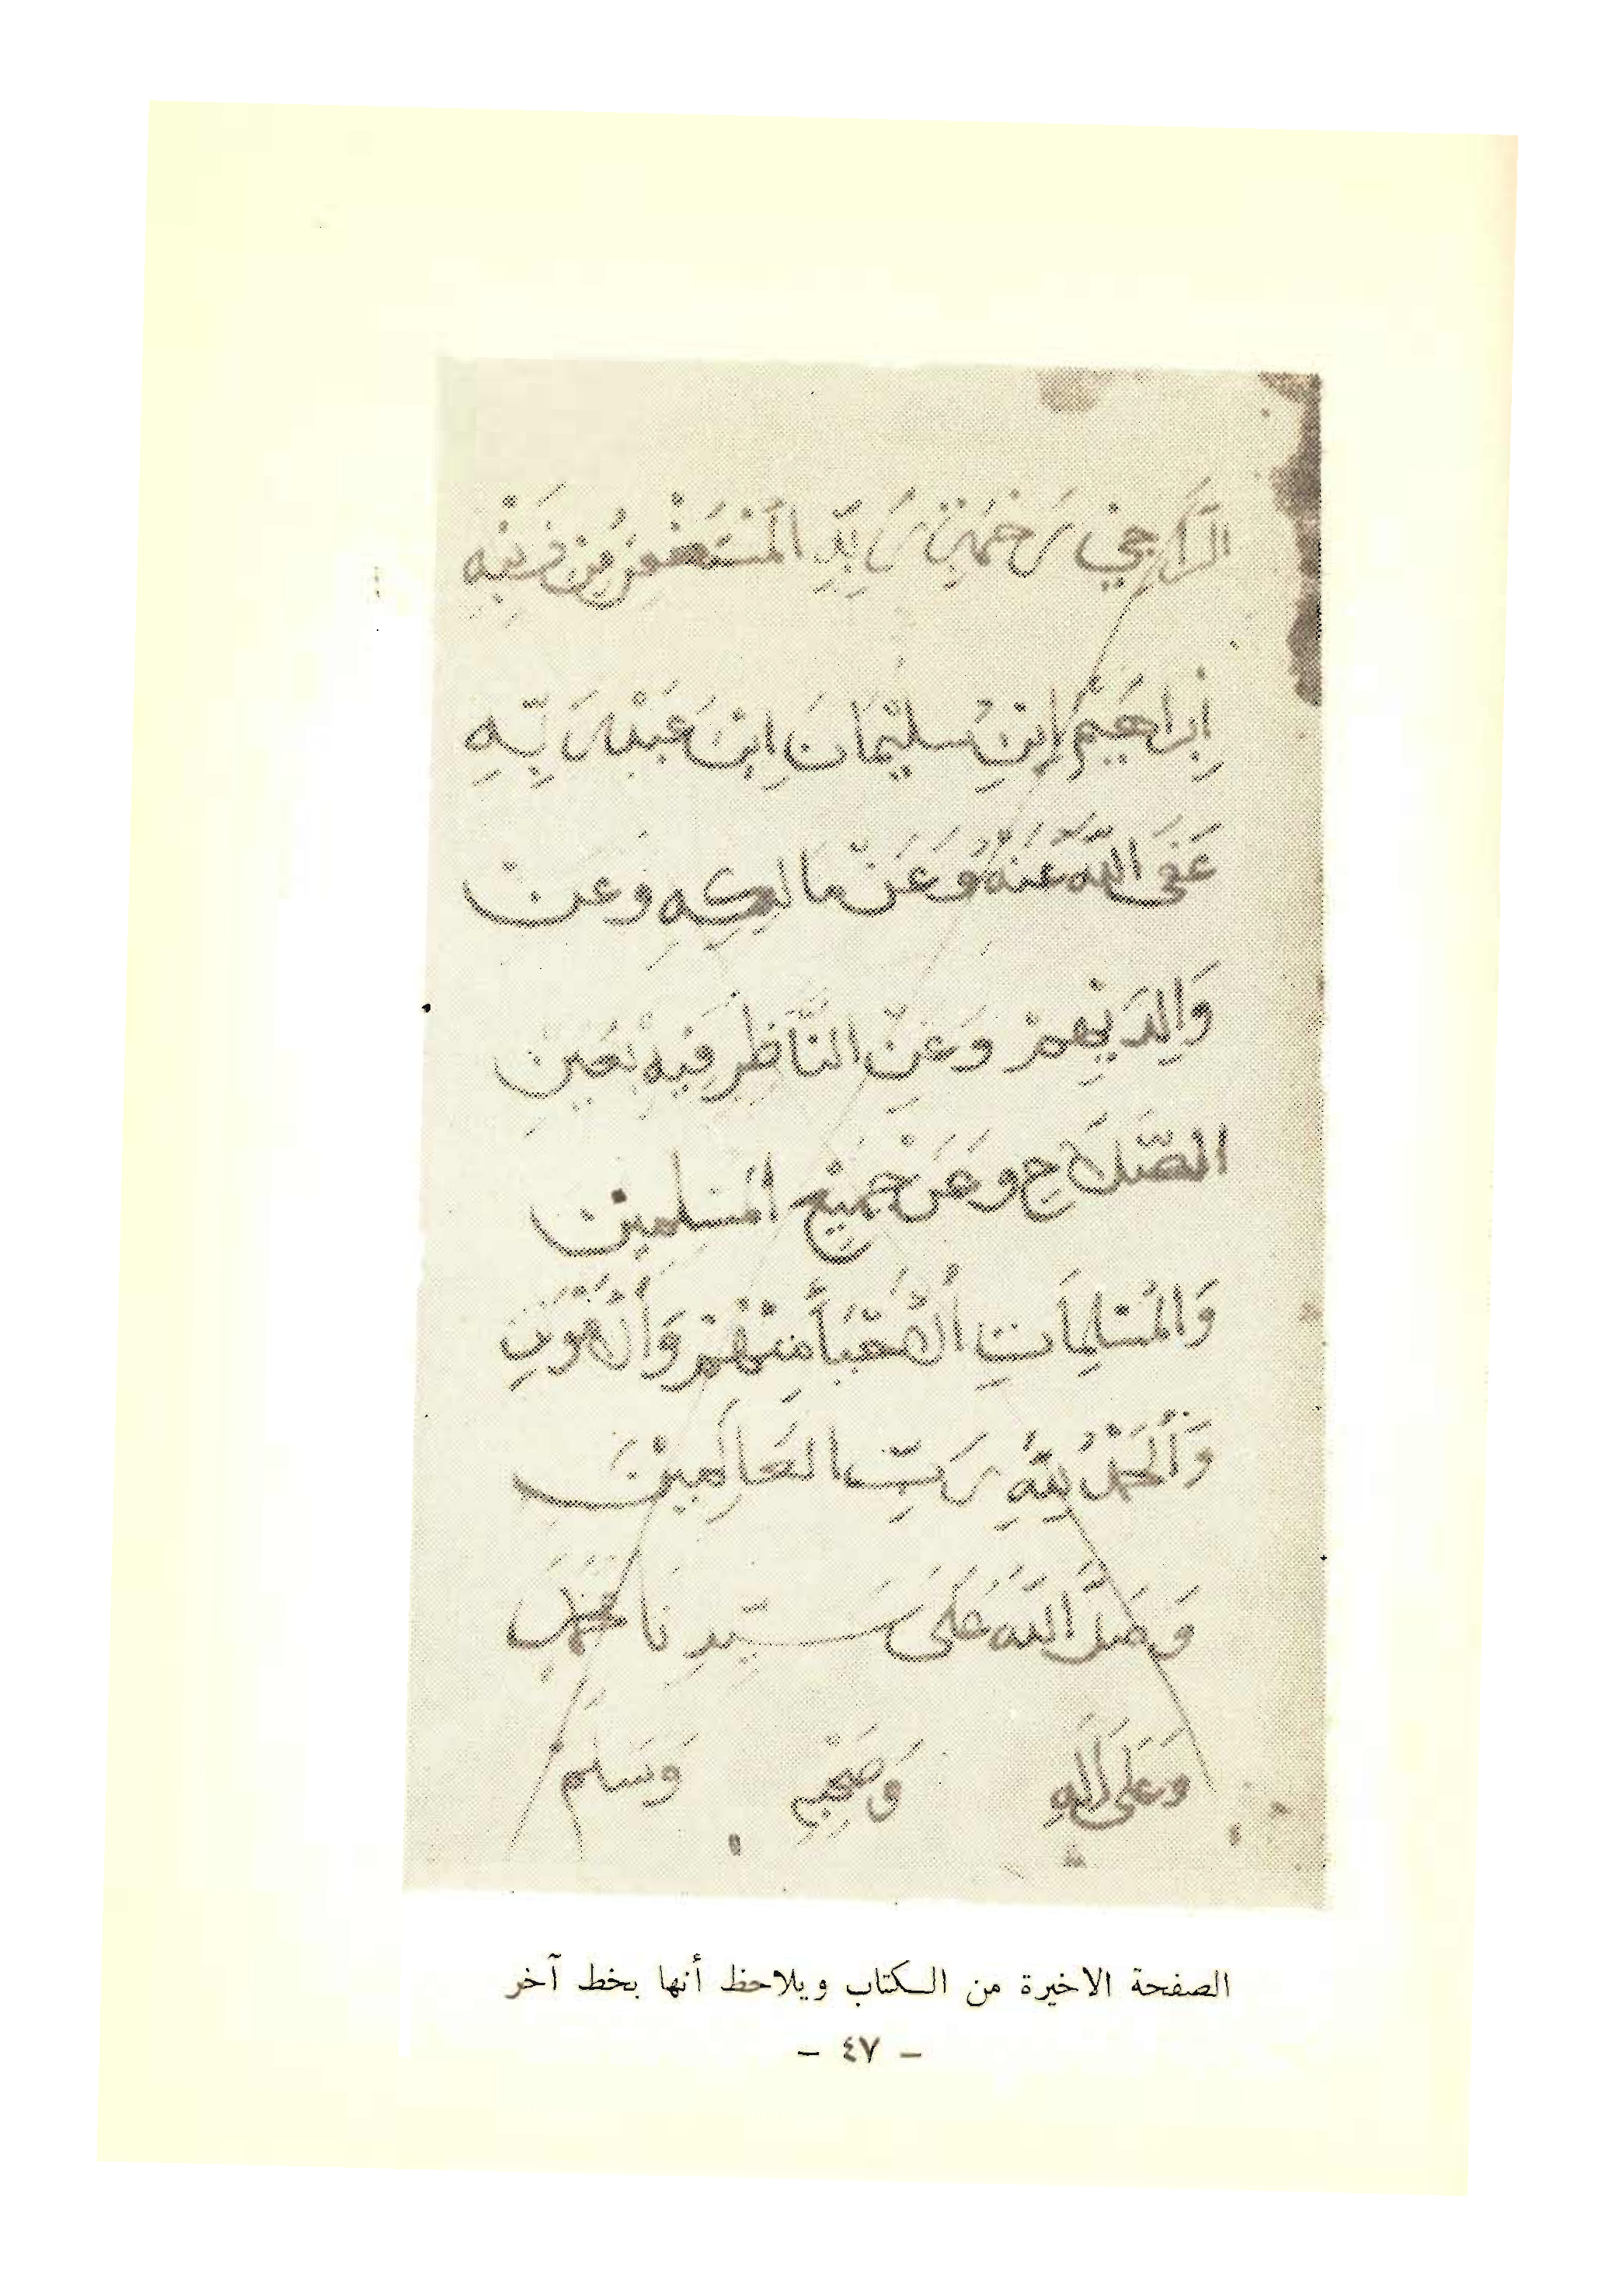 الرَّاجِي رَحْمَةَ رَبِّهِ الْمُسْتَغْفِرُ مِنْ ذَنْبِهِ
إِبْرَاهِيمُ ابْنِ سُلَيْمَانَ ابْنِ
عَفَى اللَّهُ عَنْهُ وَعَنْ مَالِكِهِ وَعَنْ
وَالِدَيْهِمْ وَعَنِ النَّاظِرِ فِيهِ بِعَيْنِ
الصَّلَاحِ وَعَنْ جَمِيْعِ الْمُسْلِمِينَ
وَالْمُسْلِمَاتِ مِنْهُمْ وَالْ
وَالْحَمْدُ لِلَّهِ رَبِّ الْعَالَمِيْنَ
وَصَلَّ اللَّهُ عَلَى سَيِّدِنَا مُحَمَّدٍ
وَعَلَى آلِهِ وَصَحْبِهِ وَسَلَّمْ
الصفحة الاخيرة من الكتاب ويلاحظ أنها بخط آخر
– ٤٧ –